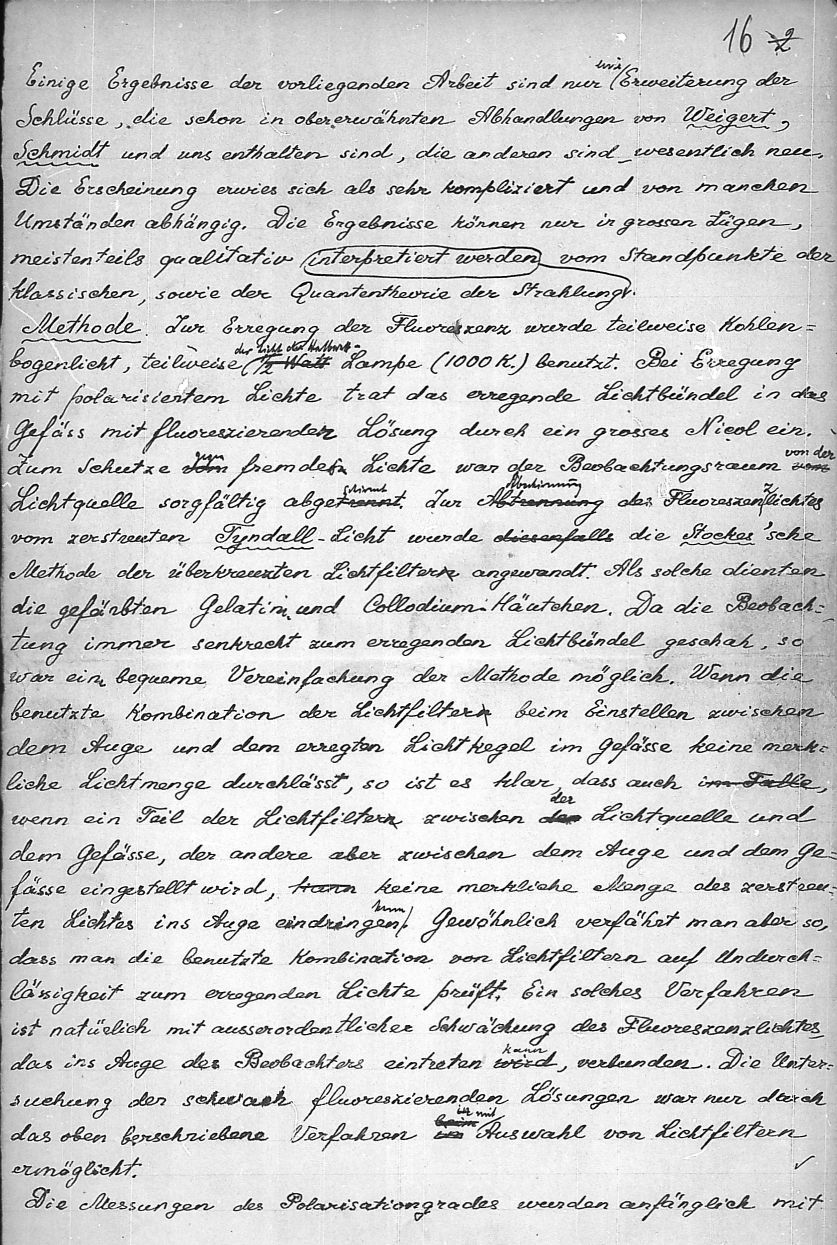 16 2
Einige Ergebnisse der vorliegenden Arbeit sind nur eine Erweiterung der
Schlüsse, die schon in obererwähnten Abhandlungen von Weigert,
Schmidt und uns enthalten sind, die anderen sind wesentlich neu.
Die Erscheinung erwies sich als sehr kompliziert und von manchen
Umständen abhängig. Die Ergebnisse können nur in grossen Zügen,
meistenteils qualitativ interpretiert werden vom Standpunkte der
klassischen, sowie der Quantentheorie der Strahlung.
Methode. Zur Erregung der Fluoreszenz wurde teilweise Kohlen=
bogenlicht, teilweise der Licht der Halbwatt- 1/2 Watt Lampe (1000 K.) benutzt. Bei Erregung
mit polarisiertem Lichte trat das erregende Lichtbündel in das
Gefäss mit fluoreszierender Lösung durch ein grosses Nicol ein.
Zum Schutze gegen vom fremdes Lichte war der Beobachtungsraum von der vom
Lichtquelle sorgfältig abgeschirmt trennt. Zur Abschirmung Abtrennung des Fluoreszenzlichtes
vom zerstreuten Tyndall-Licht wurde diesenfalls die Stockes'sche
Methode der überkreuzten Lichtfiltern angewandt. Als solche dienten
die gefärbten Gelatin und Collodium-Häutchen. Da die Beobach=
tung immer senkrecht zum erregenden Lichtbündel geschah, so
war ein bequeme Vereinfachung der Methode möglich. Wenn die
benutzte Kombination der Lichtfiltern beim Einstellen zwischen
dem Auge und dem erregten Lichtkegel im Gefässe keine merk=
liche Lichtmenge durchlässt, so ist es klar, dass auch im Falle,
wenn ein Teil der Lichtfiltern zwischen der Lichtquelle und
dem Gefässe, der andere aber zwischen dem Auge und dem Ge=
fässe eingestellt wird, kann keine merkliche Menge des zerstreu=
ten Lichtes ins Auge eindringen kann. Gewöhnlich verfährt man aber so,
dass man die benutzte Kombination von Lichtfiltern auf Undurch=
lässigkeit zum erregenden Lichte prüft. Ein solches Verfahren
ist natürlich mit ausserordentlicher Schwächung des Fluoreszenzlichtes,
das ins Auge des Beobachters eintreten kann wird, verbunden. Die Unter=
suchung der schwach fluoreszierenden Lösungen war nur durch
das oben berschriebene Verfahren mit beim in Auswahl von Lichtfiltern
ermöglicht.
Die Messungen des Polarisationgrades wurden anfänglich mit